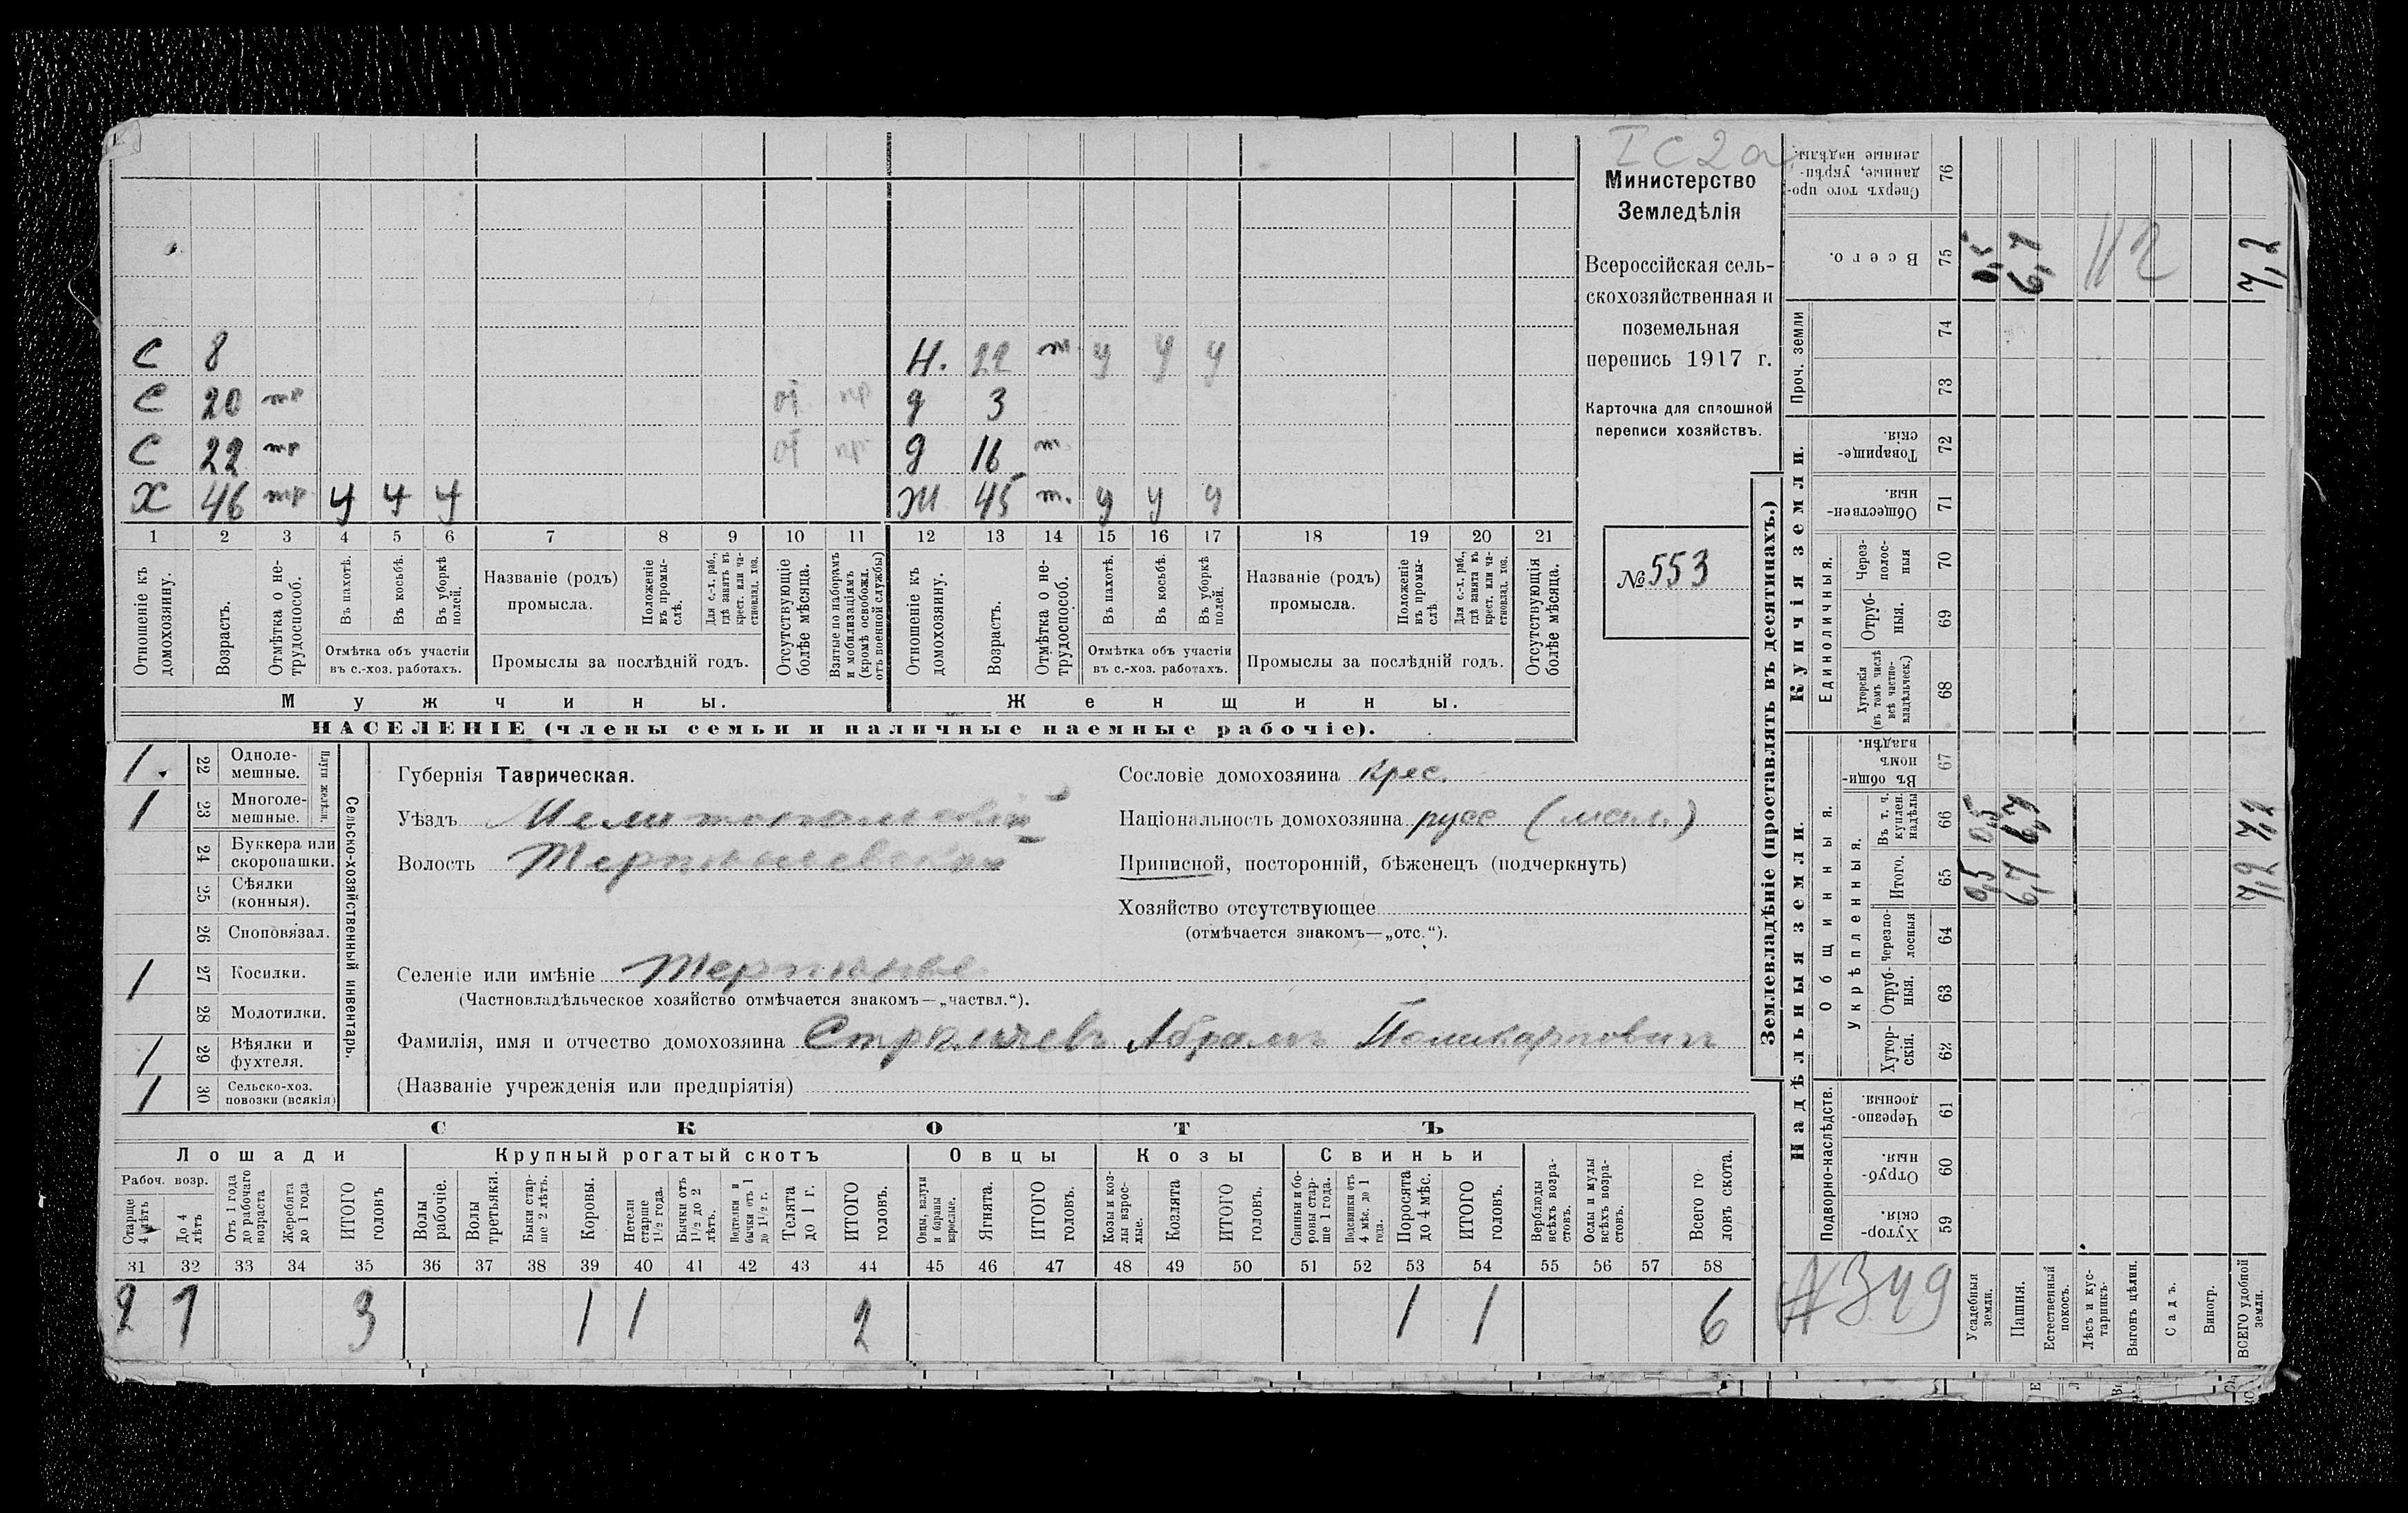 I C 2 a
Министерство
Земледѣлія
Всероссійская сель-
скохозяйственная и
поземельная
перепись 1917 г.
Карточка для сплошной
переписи хозяйствъ.
№ 553
С 8 Н. 22 т у у у
С 20 тр от пр д 3
С 22 тр от пр д 16 т
Х 46 тр у у у Ж 45 т. у у у
1 2 3 4 5 6 7 8 9 10 11 12 13 14 15 16 17 18 19 20 21
Отношеніе къ домохозяину.
Возрастъ.
Отмѣтка о не-трудоспособ.
Въ пахотѣ.
Въ косьбѣ.
Въ уборкѣ полей.
Отмѣтка объ участіи
въ с.-хоз. работахъ.
Названіе (родъ)
промысла.
Положеніе въ промы-слѣ.
Для с.-х. раб., гдѣ занятъ въ крест. или ча-стновлад. хоз.
Промыслы за послѣдній годъ.
Отсутствующіе болѣе мѣсяца.
Взятые по наборамъ и мобилизаціямъ (кромѣ освобожд. отъ военной службы)
Отношеніе къ домохозяину.
Возрастъ.
Отмѣтка о не-трудоспособ.
Въ пахотѣ.
Въ косьбѣ.
Въ уборкѣ полей.
Отмѣтка объ участіи
въ с.-хоз. работахъ.
Названіе (родъ)
промысла.
Положеніе въ промы-слѣ.
Для с.-х. раб., гдѣ занята въ крест. или ча-стновлад. хоз.
Промыслы за послѣдній годъ.
Отсутствующія болѣе мѣсяца.
Мужчины. Женщины.
НАСЕЛЕНІЕ (члены семьи и наличные наемные рабочіе).
1. 22 Одноле-мешные.
1 23 Многоле-мешные.
Плуги желѣзн.
24 Буккера или скоропашки.
25 Сѣялки (конныя).
26 Сноповязал.
1 27 Косилки.
28 Молотилки.
1 29 Вѣялки и фухтеля.
1 30 Сельско-хоз. повозки (всякія)
Сельско-хозяйственный инвентарь.
Губернія Таврическая.
Уѣздъ Мелитопольскій
Волость Терпѣньевская
Селеніе или имѣніе Терпѣнье
(Частновладѣльческое хозяйство отмѣчается знакомъ—„частвл.“).
Фамилія, имя и отчество домохозяина Абрамъ Поликарповичъ
(Названіе учрежденія или предпріятія)
Сословіе домохозяина Крес.
Національность домохозяина русс (мал.)
Приписной, посторонній, бѣженецъ (подчеркнуть)
Хозяйство отсутствующее
(отмѣчается знакомъ—„отс.“).
СКОТЪ
Лошади Крупный рогатый скотъ Овцы Козы Свиньи
Рабоч. возр.
Старше 4 лѣтъ
До 4 лѣтъ
Отъ 1 года до рабочаго возраста
Жеребята до 1 года
ИТОГО головъ
Волы рабочіе.
Волы третьяки.
Быки стар-ше 2 лѣтъ.
Коровы.
Нетели старше 1½ года.
Бычки отъ 1½ до 2 лѣтъ.
Подтелки и бычки отъ 1 до 1½ г.
Телята до 1 г.
ИТОГО головъ.
Овцы, валухи и бараны взрослые.
Ягнята.
ИТОГО головъ.
Козы и коз-лы взрос-лые.
Козлята
ИТОГО головъ.
Свиньи и бо-ровы стар-ше 1 года.
Подсвинки отъ 4 мѣс. до 1 года.
Поросята до 4 мѣс.
ИТОГО головъ.
Верблюды всѣхъ возра-стовъ.
Ослы и мулы всѣхъ возра-стовъ.
Всего го-ловъ скота.
31 32 33 34 35 36 37 38 39 40 41 42 43 44 45 46 47 48 49 50 51 52 53 54 55 56 57 58
2 1 3 1 1 2 1 1 6
Землевладѣніе (проставлять въ десятинахъ.)
Надѣльныя земли. Купчія земли. Проч. земли
Подворно-наслѣдств.
Общинныя.
Укрѣпленныя.
Единоличныя.
Хутор-скія. 59
Отруб-ныя. 60
Черезпо-лосныя. 61
Хутор-скія. 62
Отруб-ныя. 63
Черезпо-лосныя 64
Итого. 65
Въ т. ч. куплен. надѣлы 66
Въ общин-номъ владѣн. 67
Хуторскія (въ томъ числѣ всѣ частно-владѣльческ.) 68
Отруб-ныя. 69
Через-полос-ныя 70
Обществен-ныя. 71
Товарище-скія. 72
73
74
Всего. 75
Сверхъ того про-данные, укрѣп-ленные надѣлы. 76
Усадебныя земли. 0,5 0,5 0,5
Пашня. 6,7 6,7 6,7
Естественный покосъ.
Лѣсъ и кус-тарникъ.
Выгонъ цѣлин.
Садъ.
Виногр.
ВСЕГО удобной земли. 7,2 7,2 7,2
№ 349